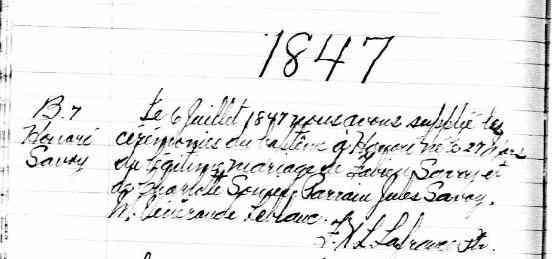 1847
B. 7
Honoré
Savoy
Le 6 Juillet 1847 nous avons supplié les
cérémonies du baptême à Honoré né le 27 Mars
du légitime mariage de Fabien Savoy et
de Charlotte Parrain Jules Savoy,
M. Vénérande Leblanc.
F. X. S. Lafrance Ptr.